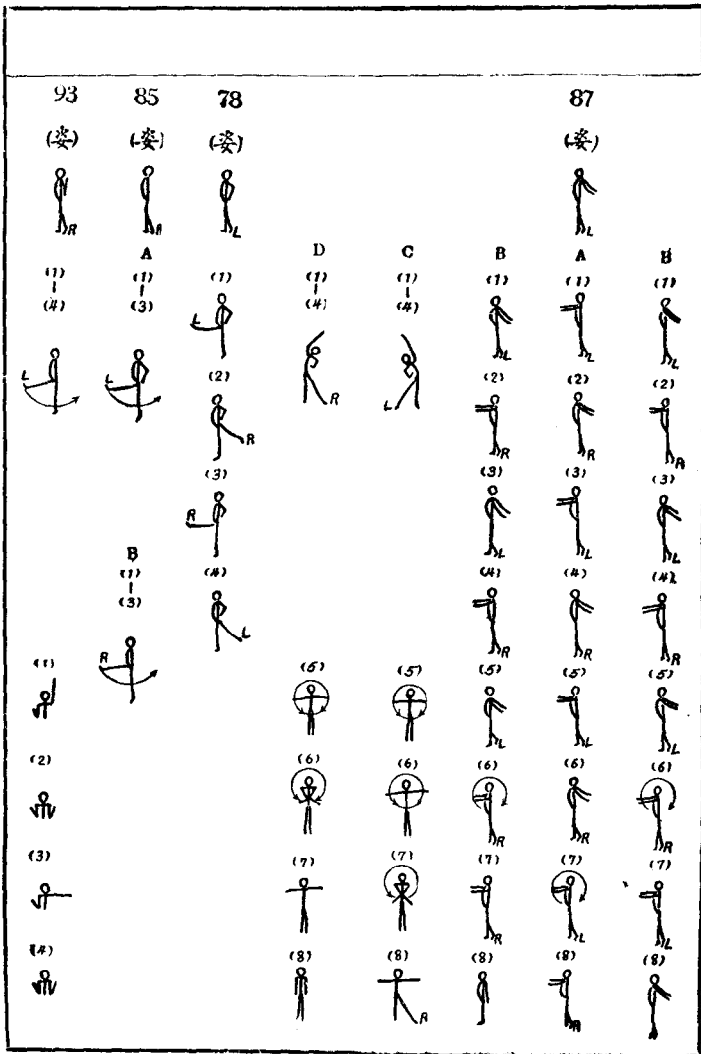 93 85 78 87
(姿) (姿) (姿) (姿)
R R L L
A D C B A B
(1) (1) (1) (1) (1) (1) (1) (1)
(4) (3) (4) (4)
L L L L L L
(2) (2) (2) (2)
L R R R R R R
(3) (3) (3) (3)
R L L L
B
(1) (4) (4) (4) (4)
(3)
L R R R
(1) R (5) (5) (5) (5) (5)
L L L
(2) (6) (6) (6) (6) (6)
R R R
(3) (7) (7) (7) (7) (7)
R L L
(4) (8) (8) (8) (8) (8)
R